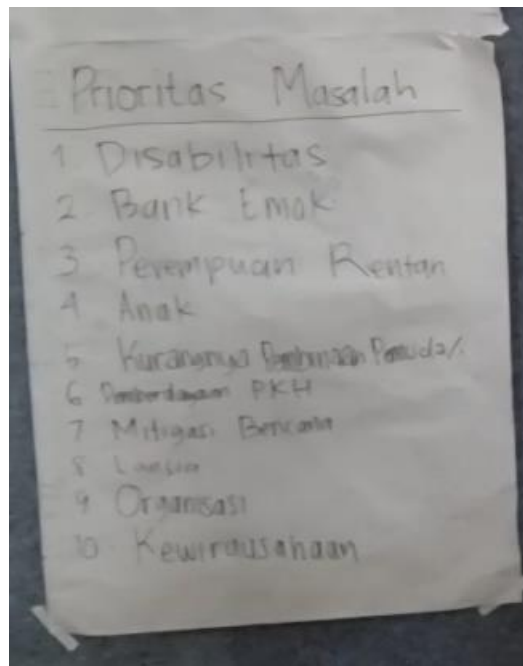 Prioritas Masalah
1 Disabilitas
2 Bank Emok
3 Perempuan Rentan
4 Anak
5 Kurangnya Pembinaan Pemuda/i
6 Pemberdayaan PKH
7 Mitigasi Bencana
8 Lansia
9 Organisasi
10 Kewirausahaan